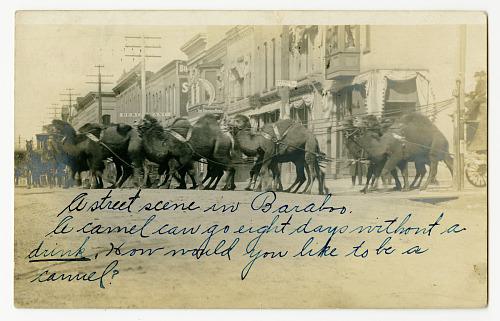 A street scene in Baraboo.
A camel can go eight days without a
drink, How would you like to be a
camel?